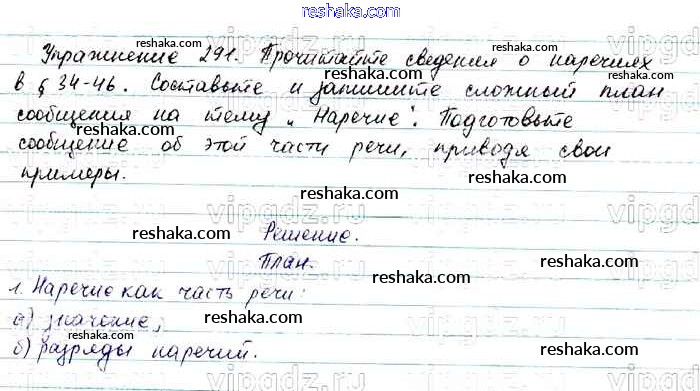 reshaka.com
Упражнение 291. Прочитайте сведения о наречиях
reshaka.com reshaka.com
в § 34-46. Составьте и запишите сложный план
reshaka.com reshaka.com
сообщения на тему „Наречие". Подготовьте
vipgdz.ru vipgdz.ru vipgd
сообщение об этой части речи, приводя свои
reshaka.com reshaka.com
примеры.
reshaka.com
vipgdz.ru vipgdz.ru vipgd
Решение.
reshaka.com reshaka.com
План.
reshaka.com
1. Наречие как часть речи:
reshaka.com
а) значение;
vipgdz.ru vipgdz.ru vipgd
reshaka.com
б) разряды наречий.
reshaka.com
reshaka.com